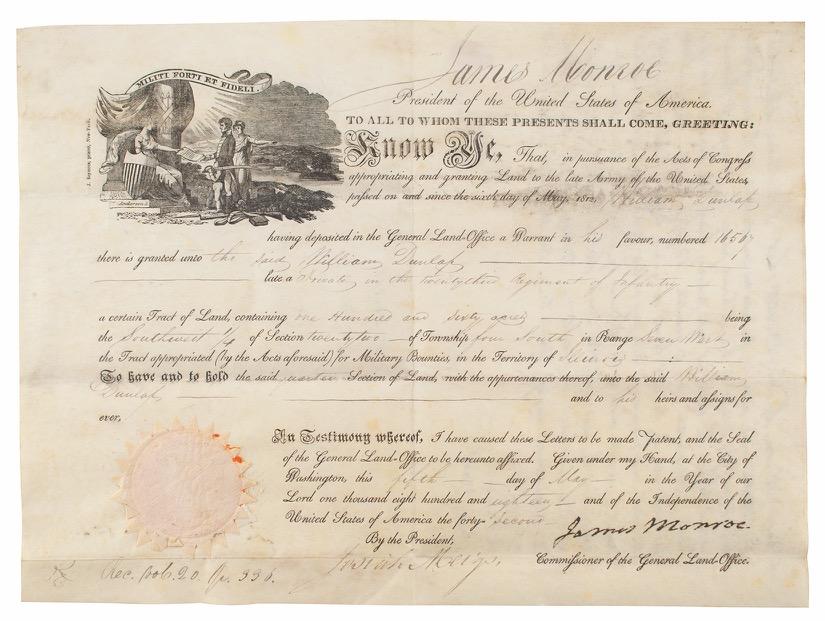 MILITI FORTI ET FIDELI.
James Monroe
President of the United States of America.
TO ALL TO WHOM THESE PRESENTS SHALL COME, GREETING:
Know Ye, That, in pursuance of the Acts of Congress
appropriating and granting Land to the late Army of the United States,
passed on and since the sixth day of May, 1812, William Dunlap
having deposited in the General Land-Office a Warrant in his favour, numbered 16567
there is granted unto the said William Dunlap
late a Private in the twentythird Regiment of Infantry
a certain Tract of Land, containing one Hundred and sixty acres being
the Southwest 1/4 of Section twenty two of Township four South in Range Seven West in
the Tract appropriated (by the Acts aforesaid) for Military Bounties, in the Territory of Illinois :
To have and to hold the said quarter Section of Land, with the appurtenances thereof, unto the said William
Dunlap and to his heirs and assigns for
ever,
In Testimony whereof, I have caused these Letters to be made Patent, and the Seal
of the General Land-Office to be hereunto affixed. Given under my Hand, at the City of
Washington, this fifth day of May in the Year of our
Lord one thousand eight hundred and eighteen and of the Independence of the
United States of America the forty-second
James Monroe
By the President,
Josiah Meigs,
Commissioner of the General Land-Office.
Rec. 20. 336.
Anderson